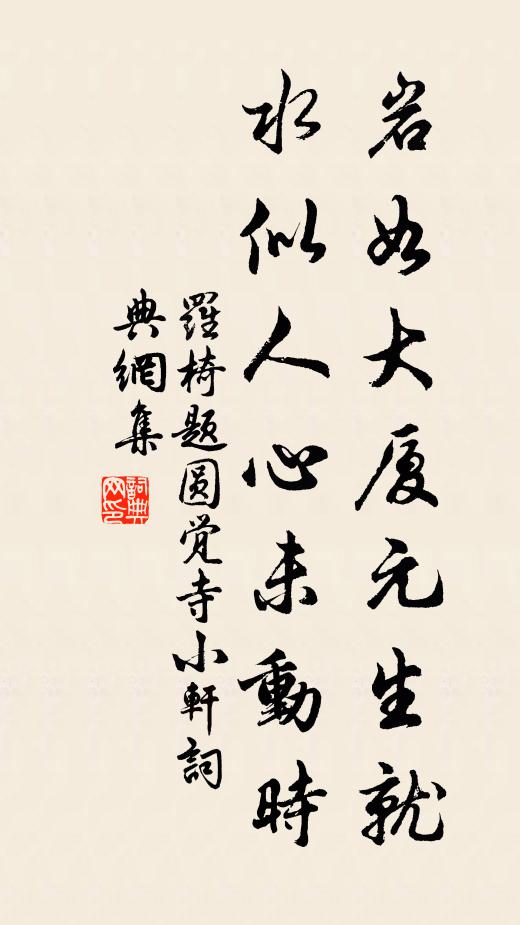 岩如大厦元生就
水似人心未動時
羅椅题圆觉寺小軒詞
典網集
詞典網印